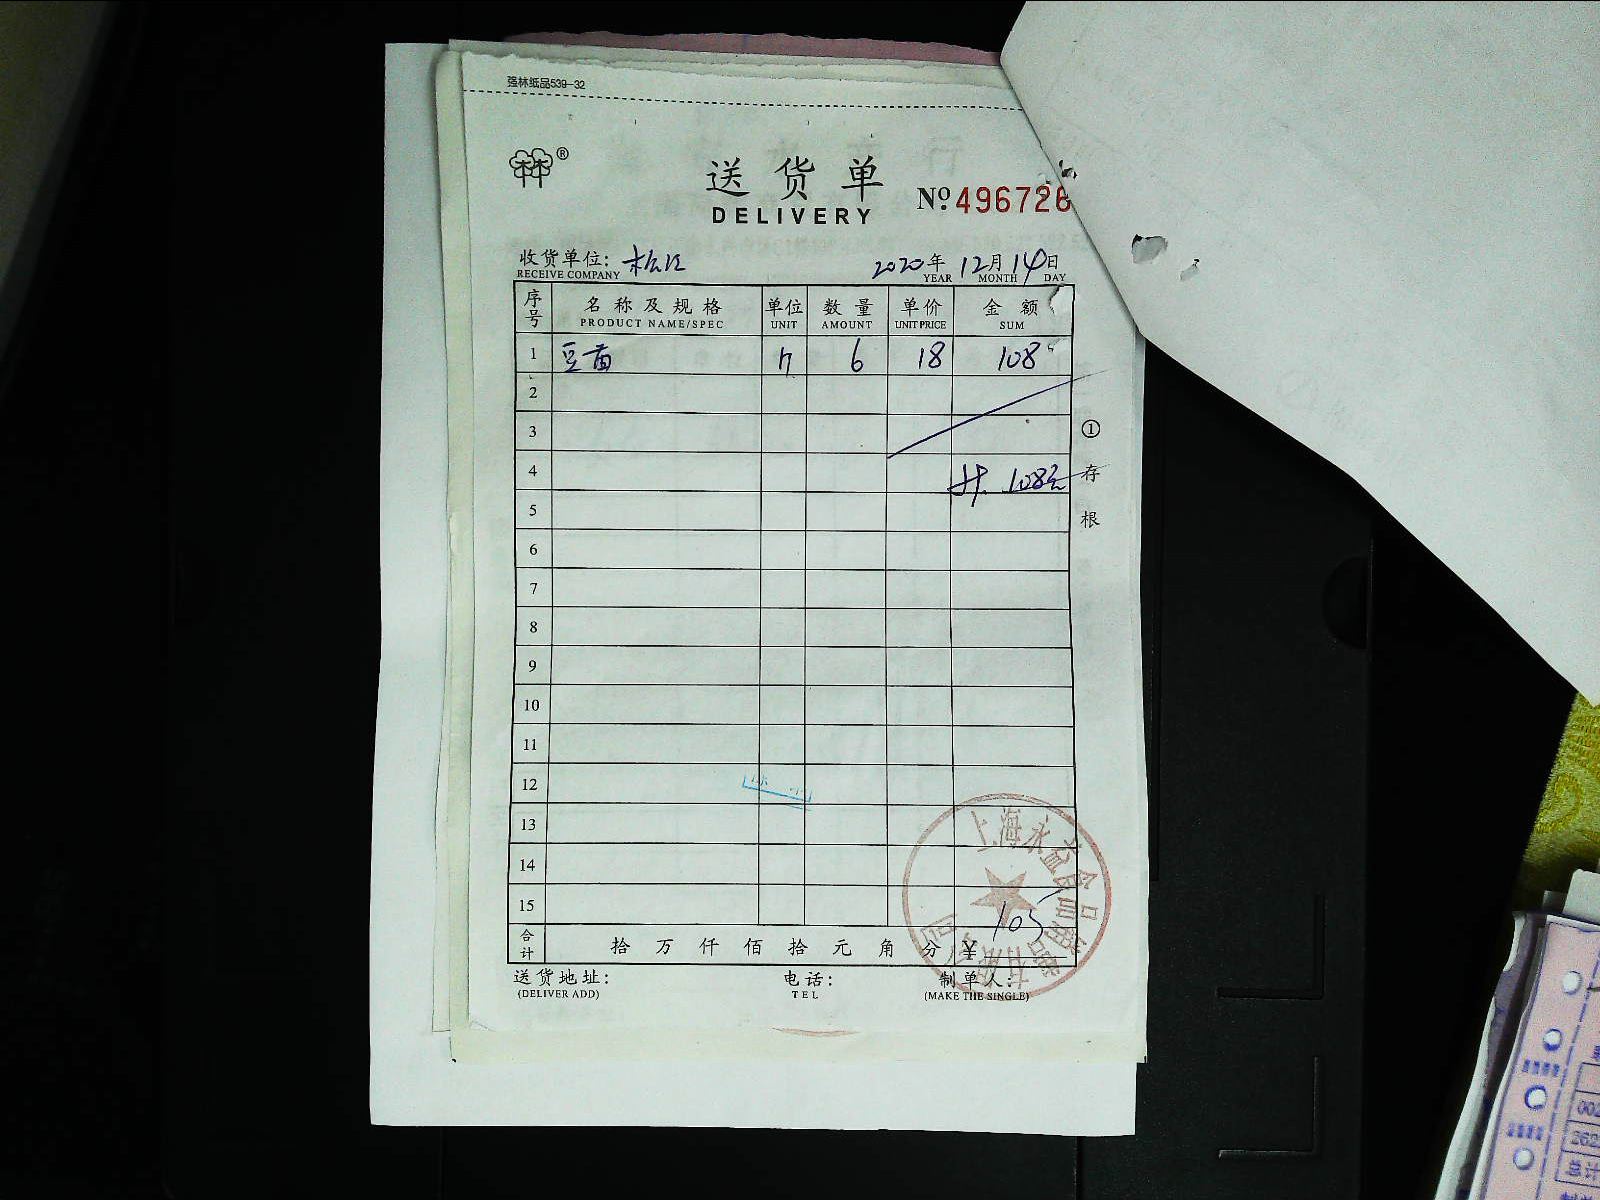 强林纸品539-32
林®
送货单
DELIVERY
Nº 496726
收货单位: 松江
RECEIVE COMPANY
2020年12月14日
YEAR MONTH DAY
序号 名称及规格 单位 数量 单价 金额
PRODUCT NAME/SPEC UNIT AMOUNT UNIT PRICE SUM
1 豆苗 6 18 108
2
3
4 共 108元
5
6
7
8
9
10
11
12
13
14
15
合计 拾万仟佰拾元角分 ¥ 105
①存根
送货地址: 电话: 制单人:
(DELIVER ADD) TEL (MAKE THE SINGLE)
上海永益食品销售有限公司